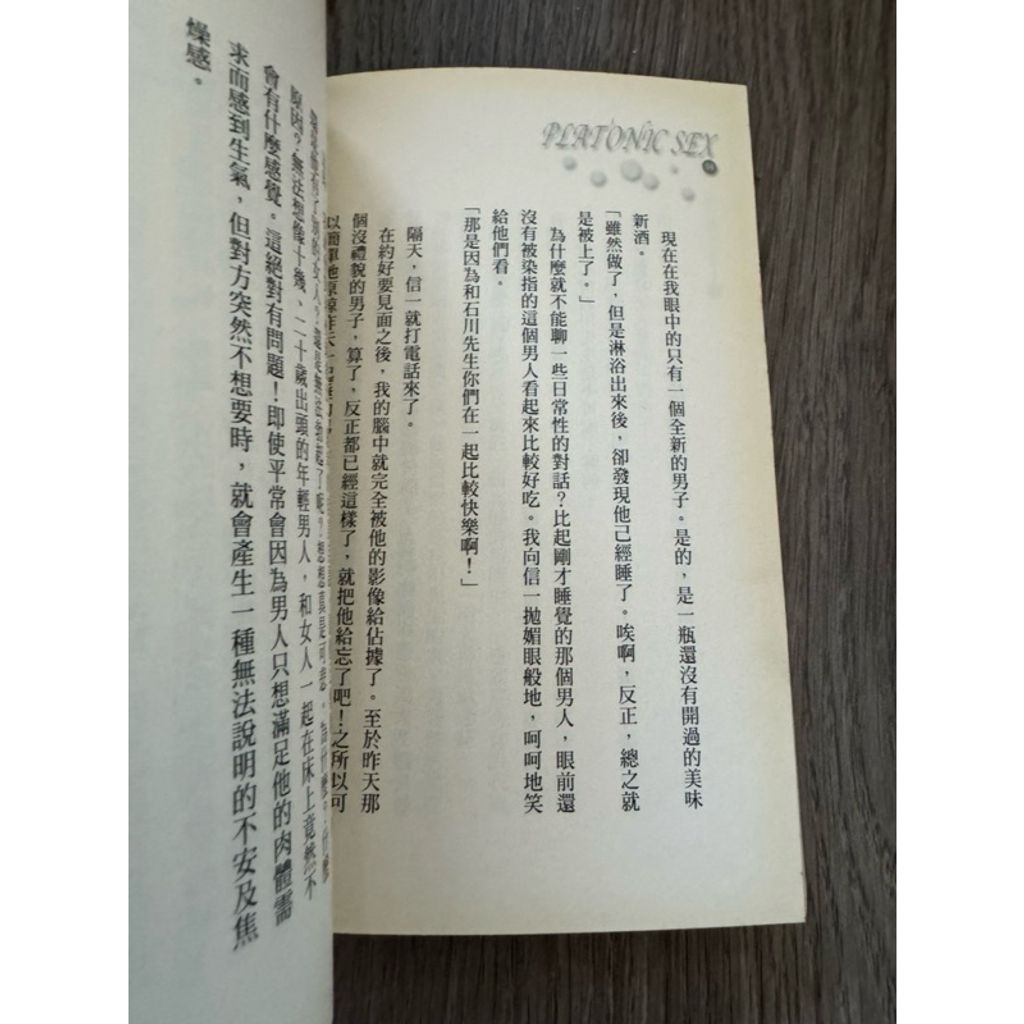 PLATONIC SEX
現在在我眼中的只有一個全新的男子。是的，是一瓶還沒有開過的美味
新酒。
「雖然做了，但是淋浴出來後，卻發現他已經睡了。唉啊，反正，總之就
是被上了。」
為什麼就不能聊一些日常性的對話？比起剛才睡覺的那個男人，眼前還
沒有被染指的這個男人看起來比較好吃。我向信一拋媚眼般地，呵呵地笑
給他們看。
「那是因為和石川先生你們在一起比較快樂啊！」
隔天，信一就打電話來了。
在約好要見面之後，我的腦中就完全被他的影像給佔據了。至於昨天那
個沒禮貌的男子，算了，反正都已經這樣了，就把他給忘了吧！之所以可
以簡單地原諒昨天
原因？無法想像十幾、二十歲出頭的年輕男人，和女人一起在床上竟然不
會有什麼感覺。這絕對有問題！即使平常會因為男人只想滿足他的肉體需
求而感到生氣，但對方突然不想要時，就會產生一種無法說明的不安及焦
燥感。